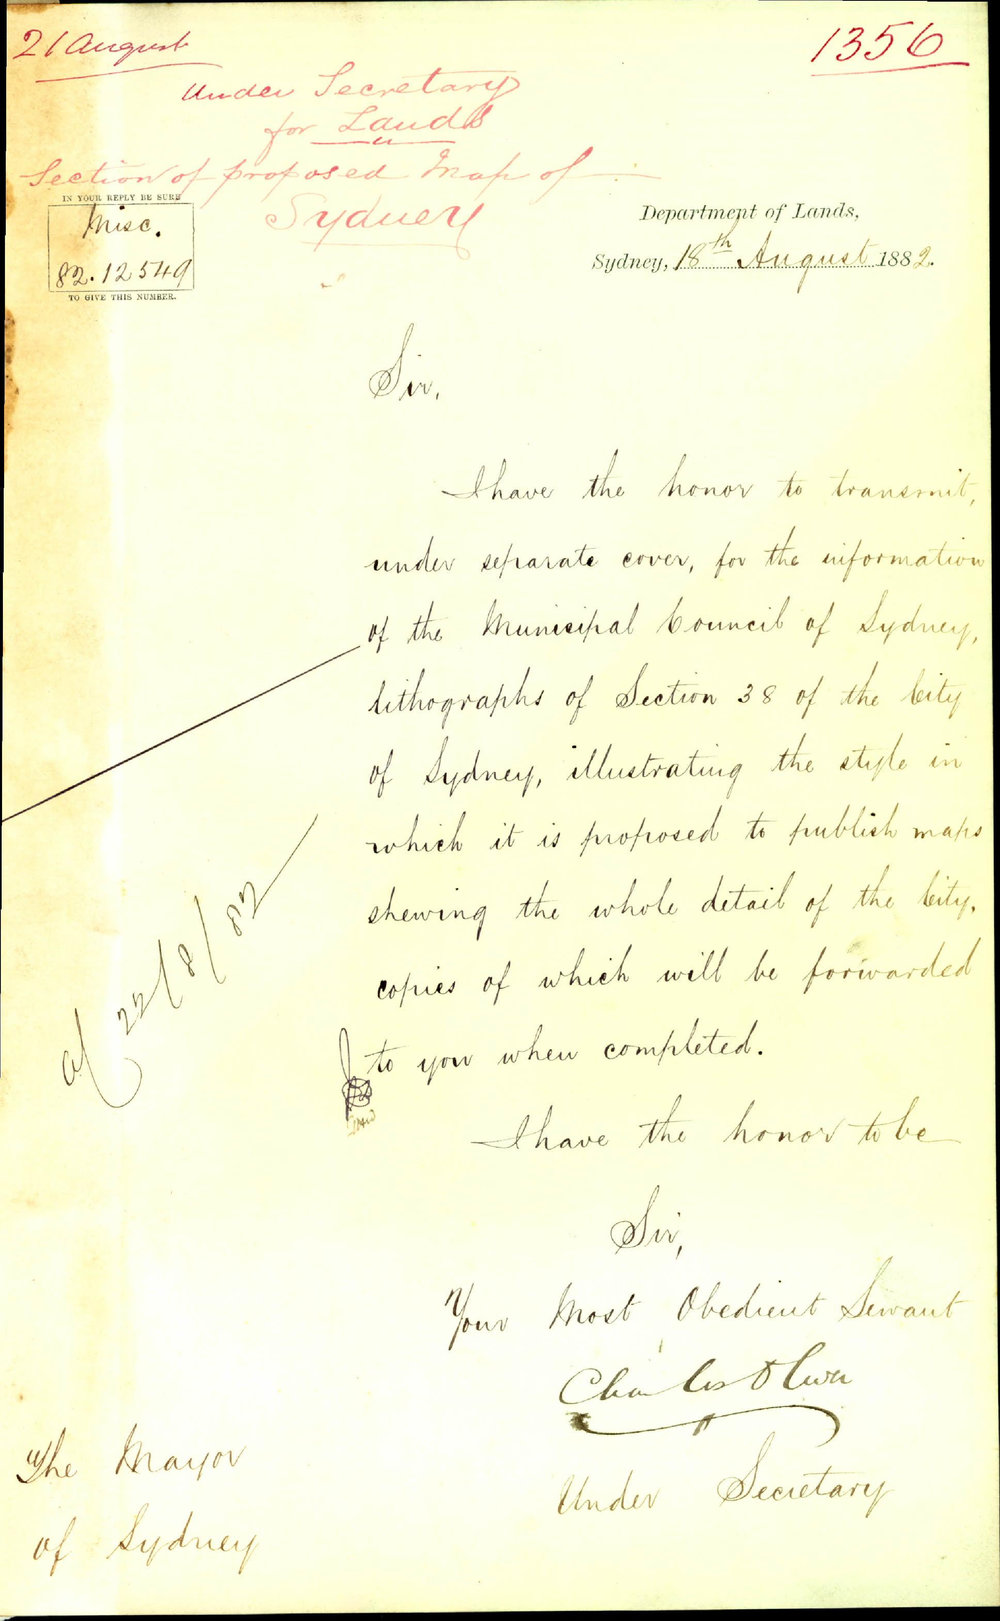 21 August
1356
Under Secretary
for Lands
Section of proposed Map of
Sydney
IN YOUR REPLY BE SURE
Misc.
82.12549
TO GIVE THIS NUMBER.
Department of Lands,
Sydney, 18th August 1882.
Sir,
I have the honor to transmit,
under separate cover, for the information
of the Municipal Council of Sydney,
lithographs of Section 38 of the City
of Sydney, illustrating the style in
which it is proposed to publish maps
shewing the whole detail of the City,
copies of which will be forwarded
to you when completed.
22/8/82
I have the honor to be
Sir,
Your Most Obedient Servant
Charles Oliver
Under Secretary
The Mayor
of Sydney